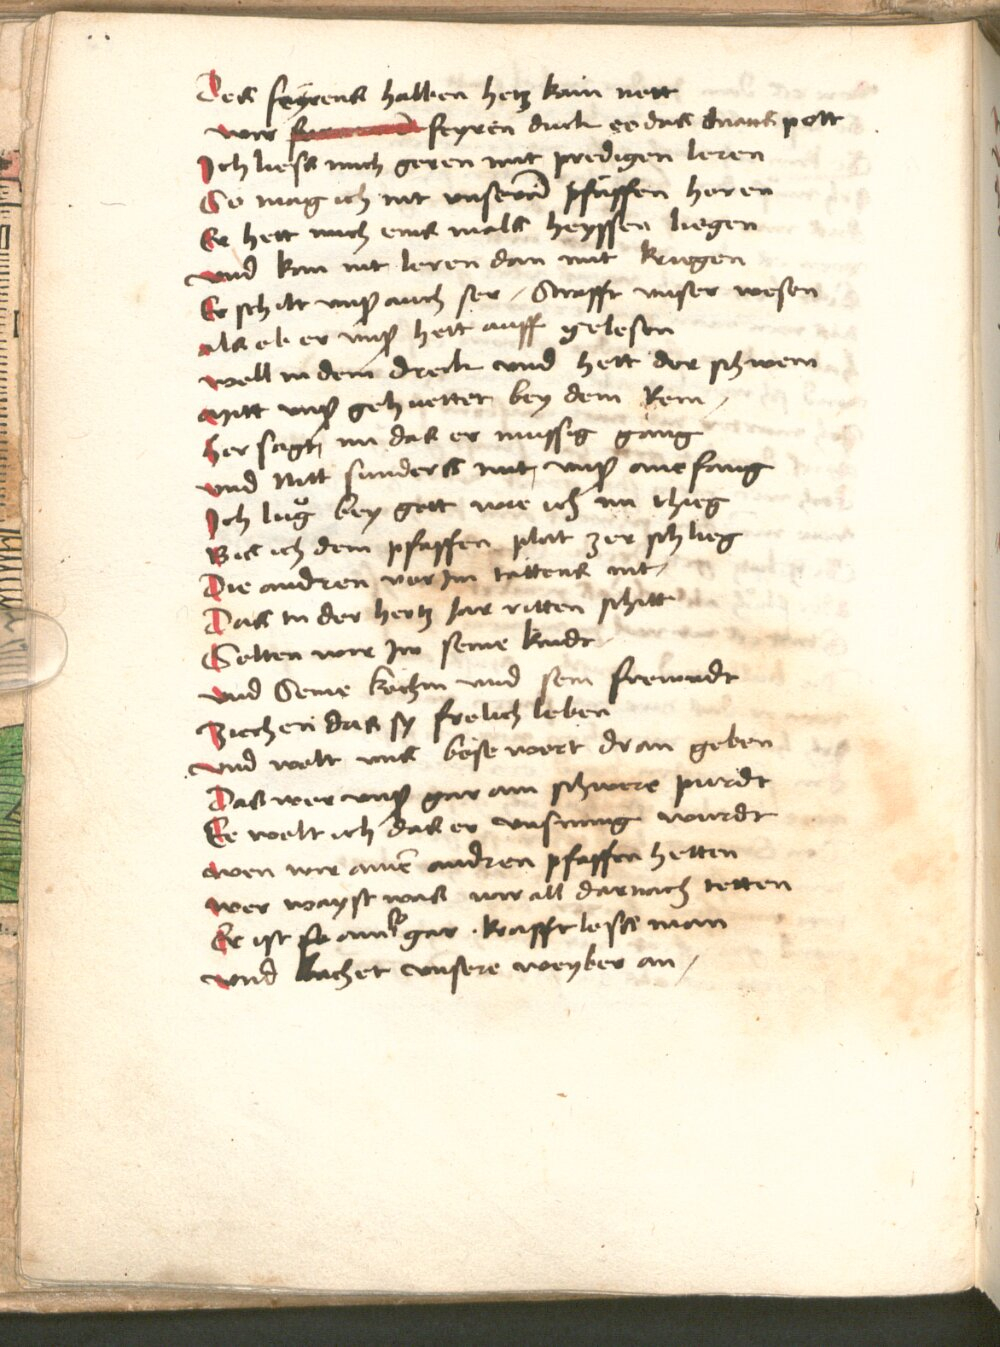 Des feyrens halben hetz kain nott
wir feyren duck ee das gnatt pott
Ich liess mich geren mit predigen leren
So mag ich nit unserm pfaffen horen
Er hett mich eins mals heyssen liegen
und kan nit leren dan mit kriegen
Er schilt uns auch ser / Strafft unser wesen
als ob er uns hett auff gelesen
woll in dem dreck und hett der schwein
Mitt uns gehuettet bey dem Rein /
Her sagt im das er mussig gang
und Nitt sunders mit uns anefang
Ich lug bey gott wie ich im thieg
Bis ich dem pfaffen plat zer schlieg
Die andren vor Im tattens nit /
Das in der hertz Jar ritten schitt
Solten wir Im seine kindt
und Seine kochin und sein frewndt
Ziechen das sy frolich leben
und wolt uns bose wort dran geben
Das wer uns gar ain schwere purdt
Ee wolt ich das er unsinnig wurdt
wen wir ainen andren pfaffen hetten
wer wayst was wir all darnach tetten
Er ist so gar krafftloss man
und lachet unsere weyber an /